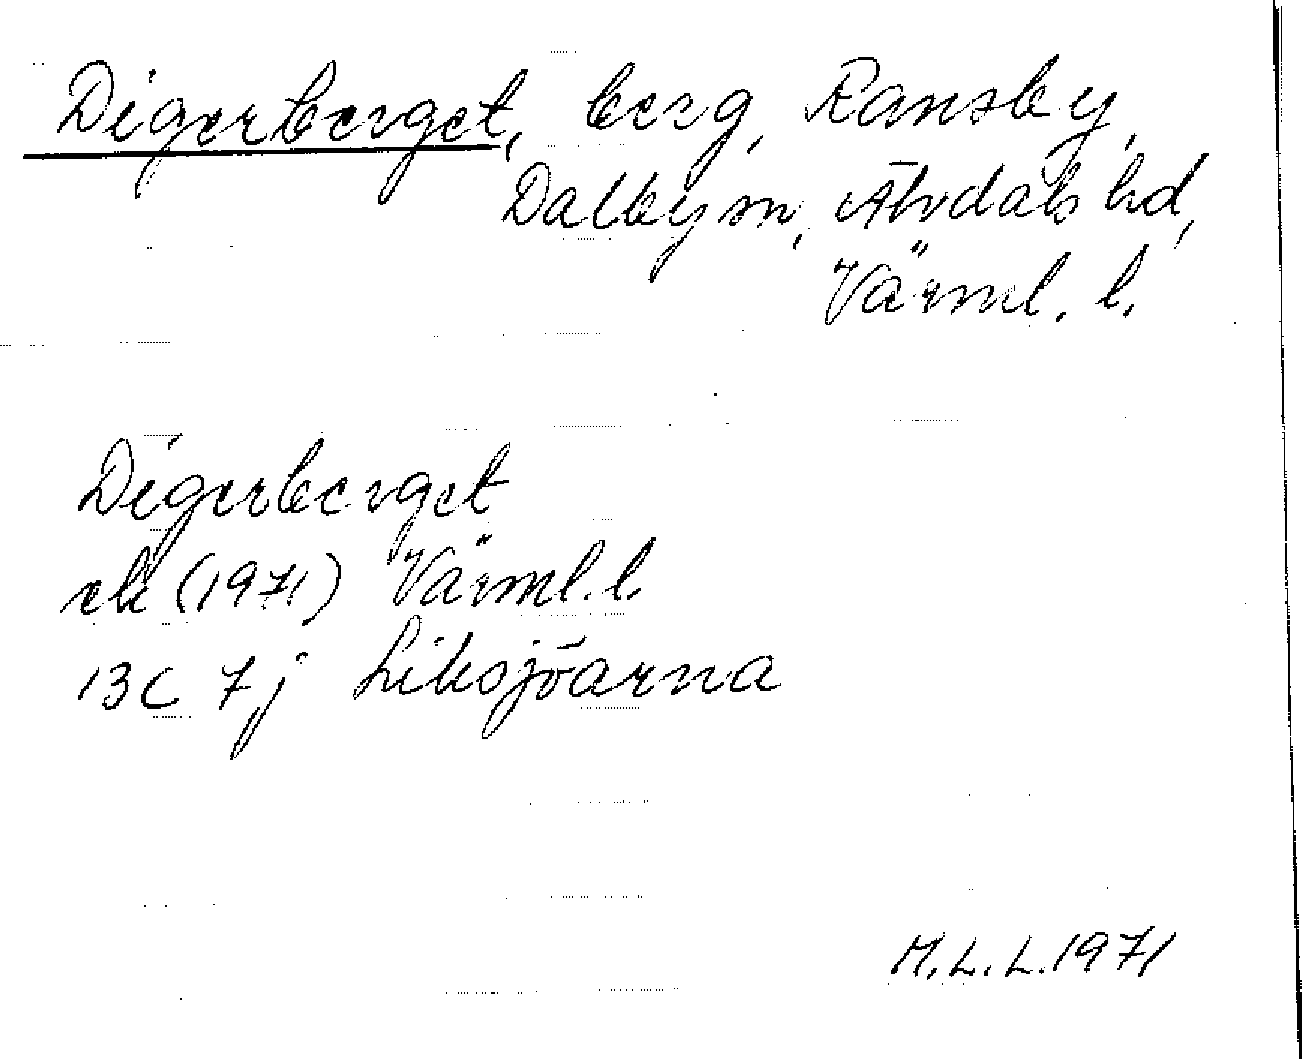 Digerberget, berg, Ransby,
Dalby sn, Älvdals hd,
Värml. l.
Digerberget
ek (1971) Värml. l.
13C 7j Liksjöarna
M.L.L. 1971